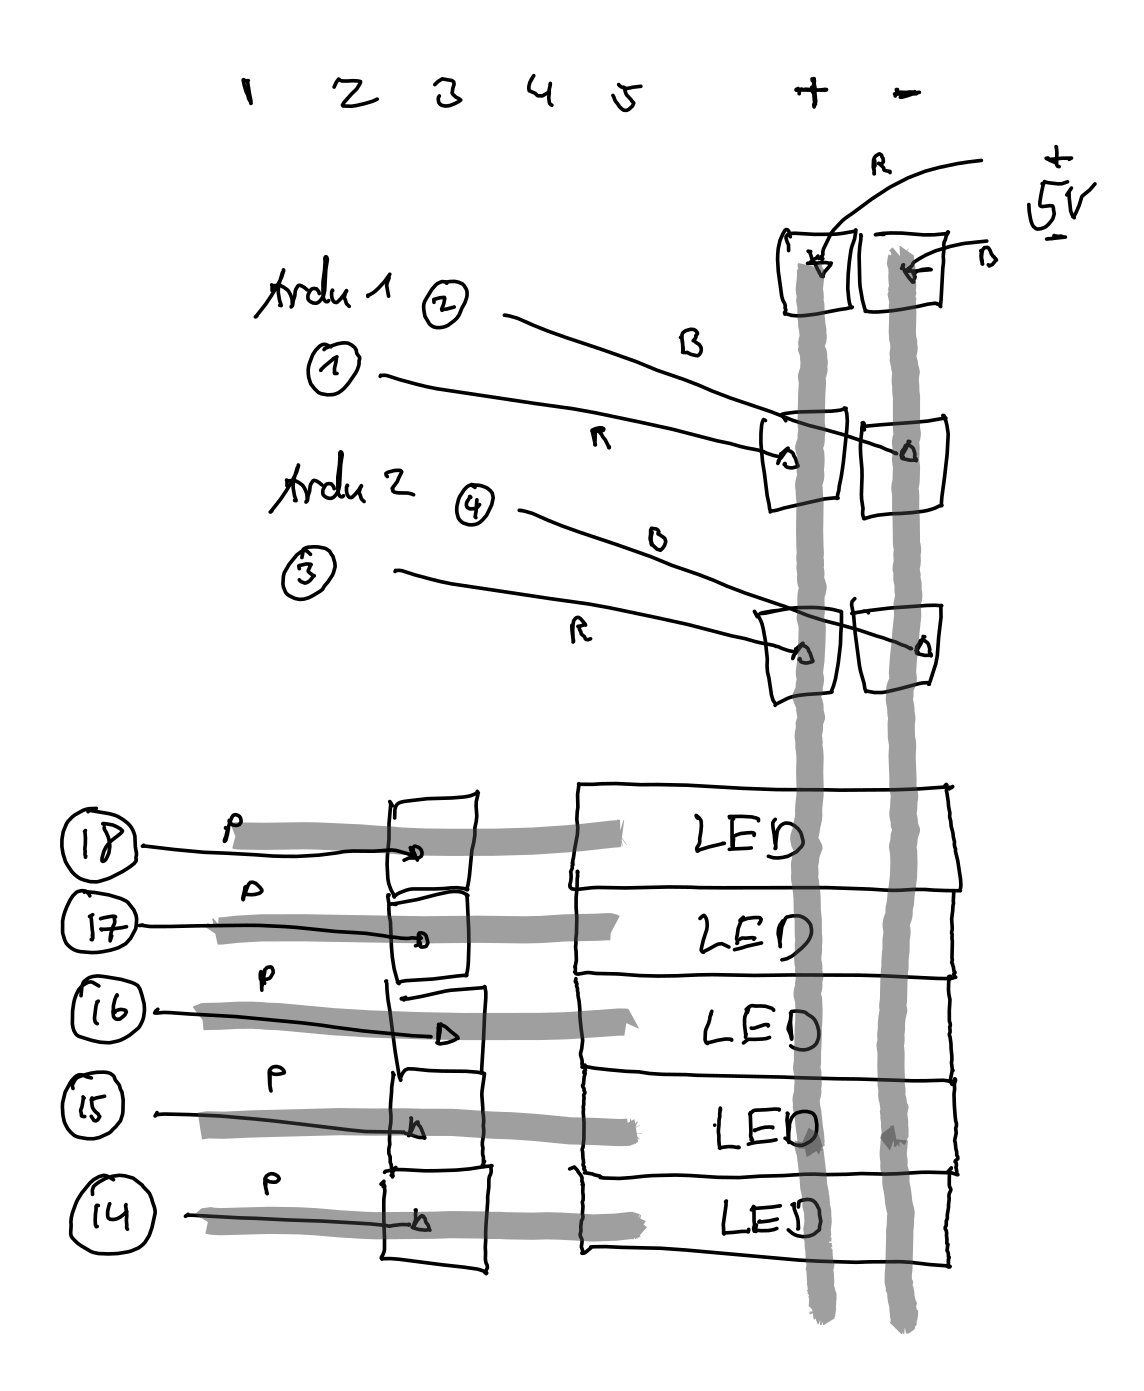 1 2 3 4 5 + -
R +
5V
-
B
Ardu 1 2
B
1
R
Ardu 2 4
B
3
R
18 P LED
17 P LED
16 P LED
15 P LED
14 P LED